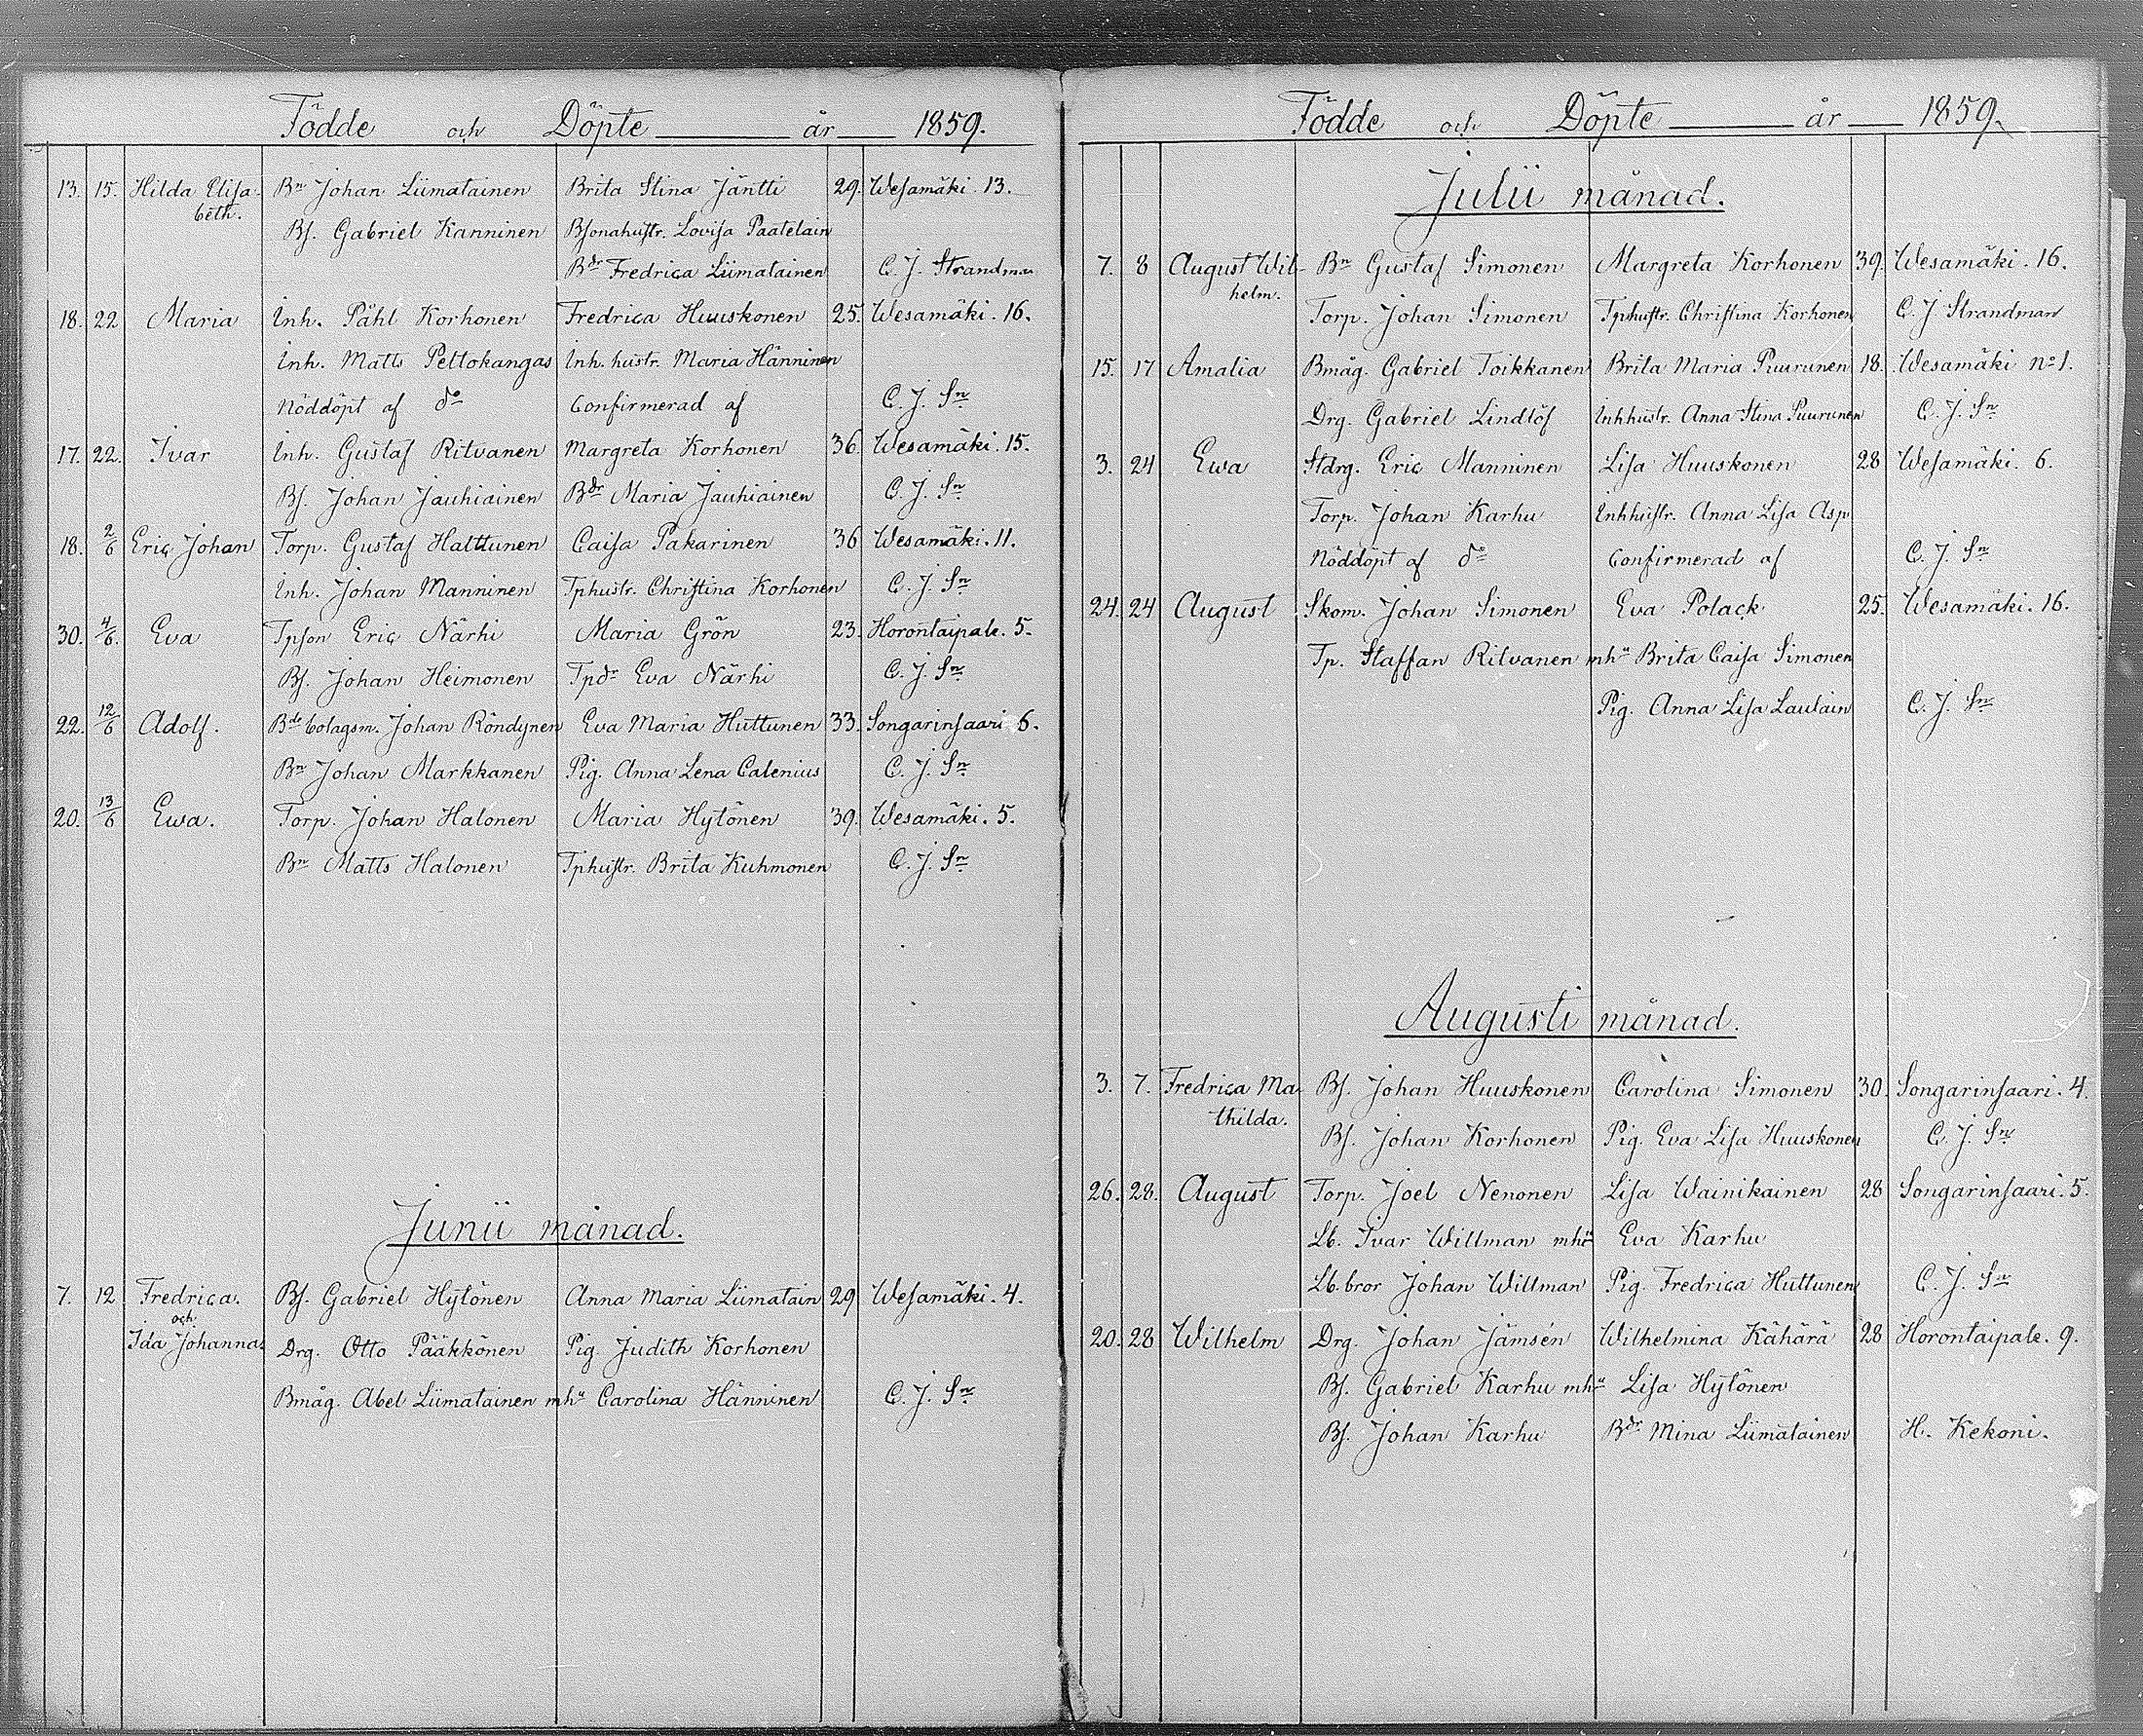 Födde och Döpte år 1859.
13. 15. Hilda Elisa- Bn Johan Liimatainen Brita Stina Jäntti 29. Wesamäki. 13.
beth.
Bs. Gabriel Kanninen Bsonahustr. Lovisa Paatelain
Bdr Fredrica Liimatainen C. J. Strandman
18. 22 Maria Inh. Påhl Korhonen Fredrica Huuskonen 25. Wesamäki. 16.
Inh. Matts Peltokangas Inh. hustr. Maria Hänninen
Nöddöpt af do Confirmerad af C. J. Sn
17. 22. Ivar Inh. Gustaf Ritvanen Margreta Korhonen 36. Wesamäki. 15.
Bs. Johan Jauhiainen Bdr Maria Jauhiainen C. J. Sn
18. 2/6 Eric Johan Torp. Gustaf Halttunen Caisa Pakarinen 36 Wesamäki. 11.
Inh. Johan Manninen Tphustr. Christina Korhonen C. J. Sn
30. 4/6. Eva Tpson Eric Närhi Maria Grön 23. Horontaipale. 5.
Bs. Johan Heimonen Tpdr Eva Närhi C. J. Sn
22. 12/6 Adolf. Bde bolagsm. Johan Röndynen Eva Maria Huttunen 33. Songarinsaari 6.
Bn Johan Markkanen Pig. Anna Lena Calenius C. J. Sn
20. 13/6 Ewa. Torp. Johan Halonen Maria Hytönen 39. Wesamäki. 5.
Bn Matts Halonen Tphustr. Brita Kuhmonen C. J. Sn
Junii månad.
7. 12 Fredrica. Bs. Gabriel Hytönen Anna Maria Liimatain 29 Wesamäki. 4.
och
Ida Johanna. Drg. Otto Pääkkönen Pig. Judith Korhonen
Bmåg. Abel Liimatainen mhu Carolina Hänninen C. J. Sn
Födde och Döpte år 1859.
Julii månad.
7. 8 August Wil- Bn Gustaf Simonen Margreta Korhonen 39. Wesamäki. 16.
helm.
Torp. Johan Simonen Tphustr. Christina Korhonen C. J. Strandman
15. 17 Amalia Bmåg. Gabriel Toikkanen Brita Maria Puurunen 18. Wesamäki No 1.
Drg. Gabriel Lindlöf Inhhustr. Anna Stina Puurunen C. J. Sn
3. 24 Ewa Stdrg. Eric Manninen Lisa Huuskonen 28 Wesamäki. 6.
Torp. Johan Karhu Inhhustr. Anna Lisa Asp
Nöddöpt af do Confirmerad af C. J. Sn
24. 24 August Skom. Johan Simonen Eva Polack 25. Wesamäki. 16.
Tp. Staffan Ritvanen mhu Brita Caisa Simonen
Pig. Anna Lisa Laulain C. J. Sn
Augusti månad.
3. 7. Fredrica Ma- Bs. Johan Huuskonen Carolina Simonen 30. Songarinsaari. 4.
thilda.
Bs. Johan Korhonen Pig. Eva Lisa Huuskonen C. J. Sn
26. 28. August Torp. Joel Nenonen Lisa Wainikainen 28 Songarinsaari. 5.
Lb. Ivar Willman mhu Eva Karhu
Lb. bror Johan Willman Pig. Fredrica Huttunen C. J. Sn
20. 28 Wilhelm Drg. Johan Jämsén Wilhelmina Kähärä 28 Horontaipale. 9.
Bs. Gabriel Karhu mhu Lisa Hytönen
Bs. Johan Karhu Bdr Mina Liimatainen H. Kekoni.